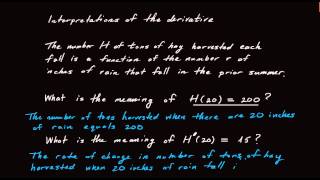 Interpretations of the derivative
The number H of tons of hay harvested each
fall is a function of the number r of
inches of rain that fall in the prior summer.
What is the meaning of H(20) = 200?
The number of tons harvested when there are 20 inches
of rain equals 200
What is the meaning of H'(20) = 15?
The rate of change in number of tons of hay
harvested when 20 inches of rain fall i